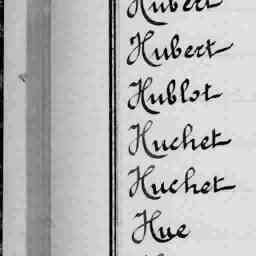 Hubert
Hubert
Hublot
Huchet
Huchet
Hue